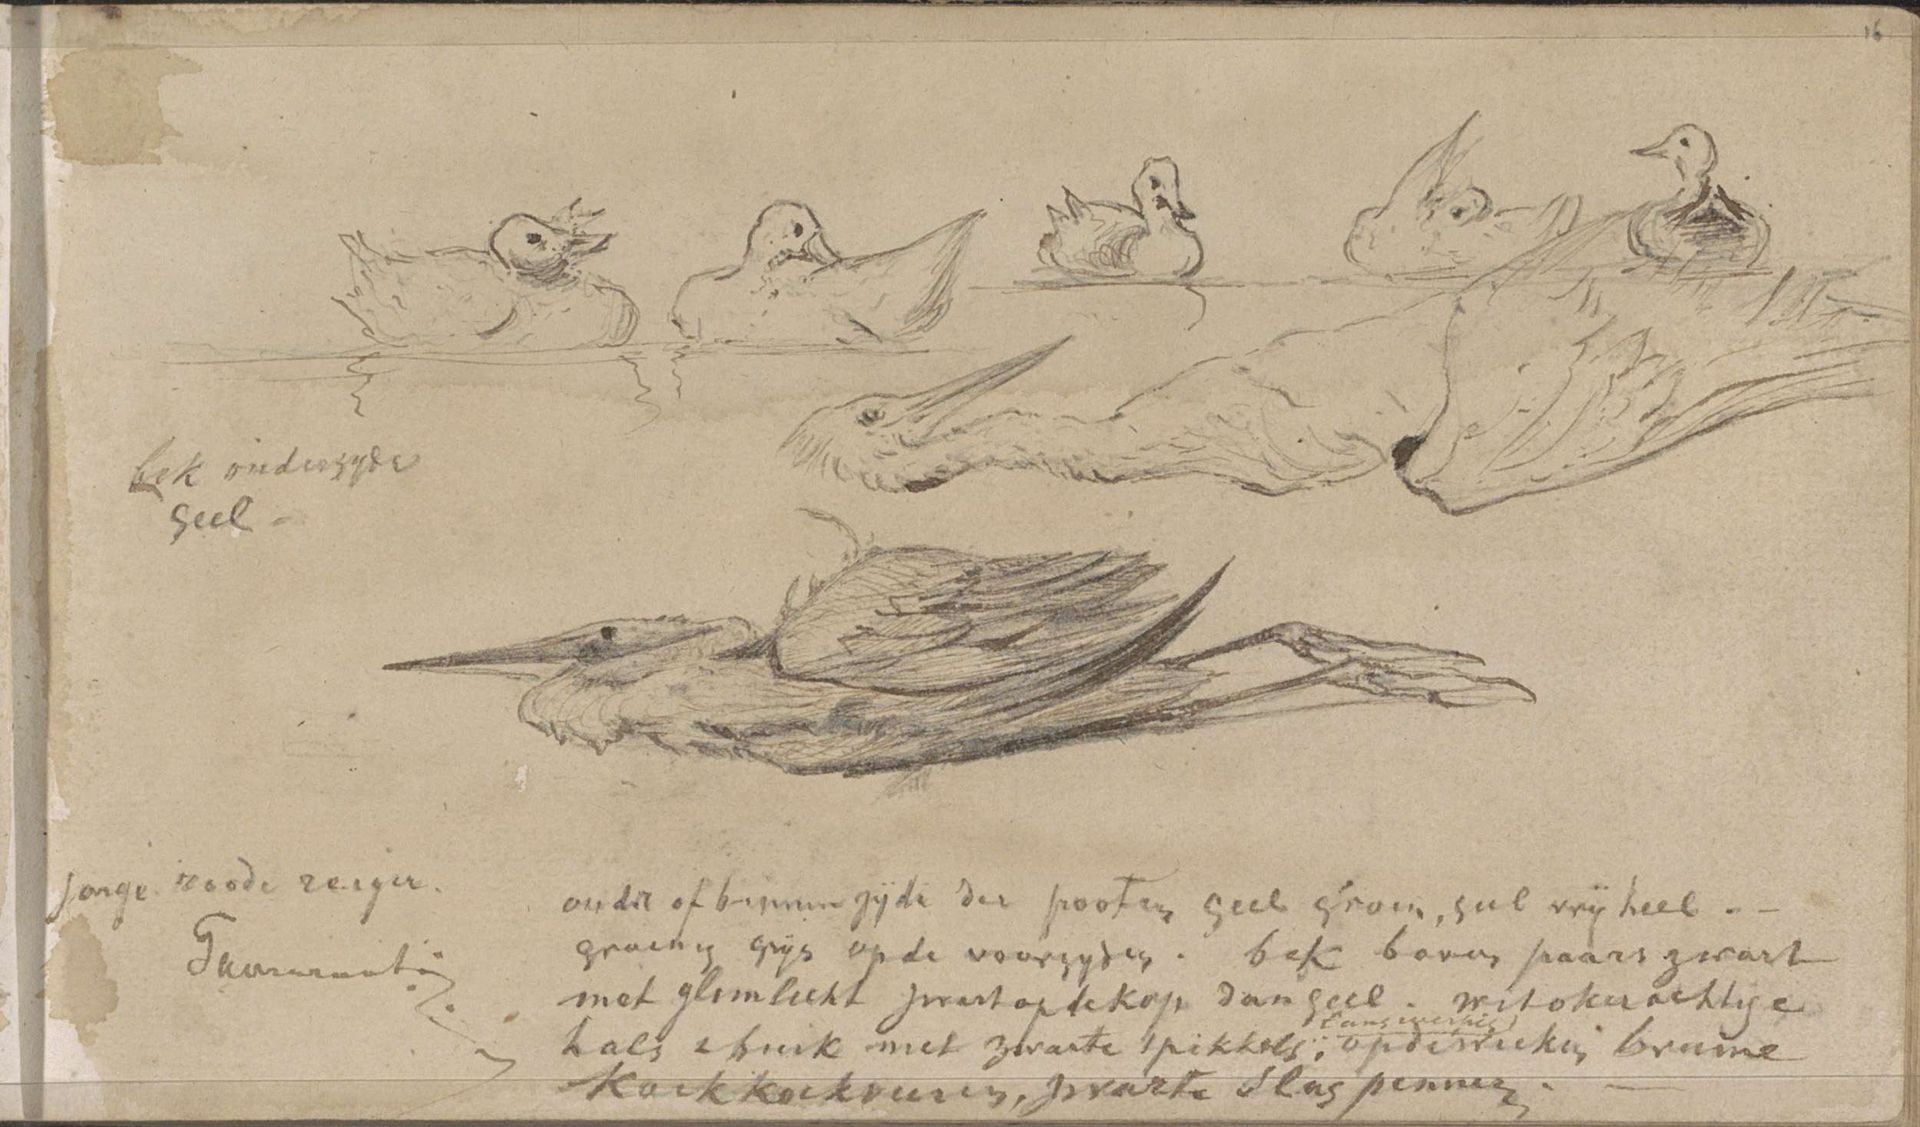 16
bek onderzyde
geel -
jonge roode reiger.
onder of binnen zijde der pooten geel groen, geel vrij heel - -
groenig grijs op de voorzyden. bek boven paars zwart
met glimlicht zwart op de kop dan geel. witokerachtige
langwerpig
hals & buik met zwarte spikkels, op de wieken bruine
koekkoekveeren, zwarte slagpennen. -